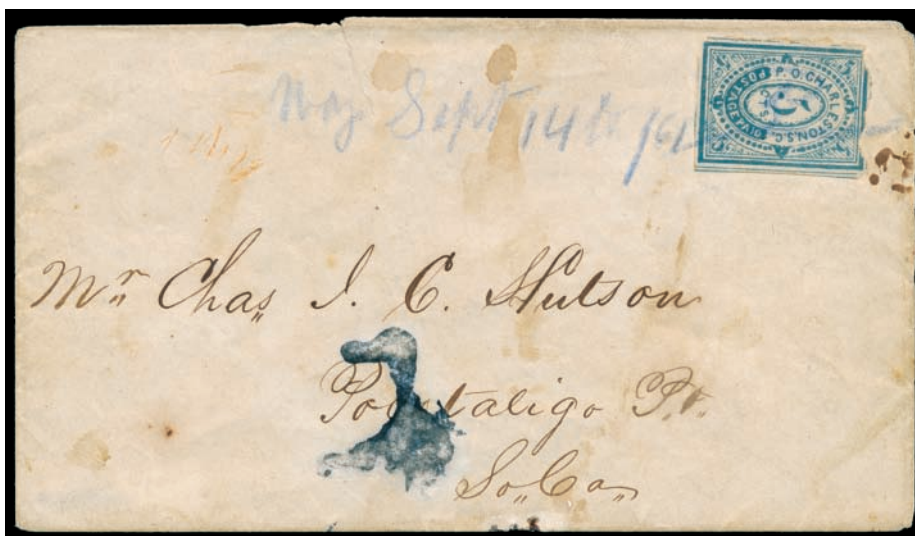 Sept 14th /61
5 5
P.O. CHARLESTON, S.C.
POSTAGE
5
5 5
Mr. Chas. J. C. Hutson
Pocotaligo P.O.
So. Ca.